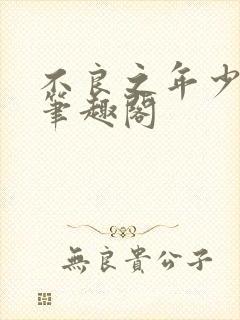 不良之年少
筆趣閣
無良貴公子